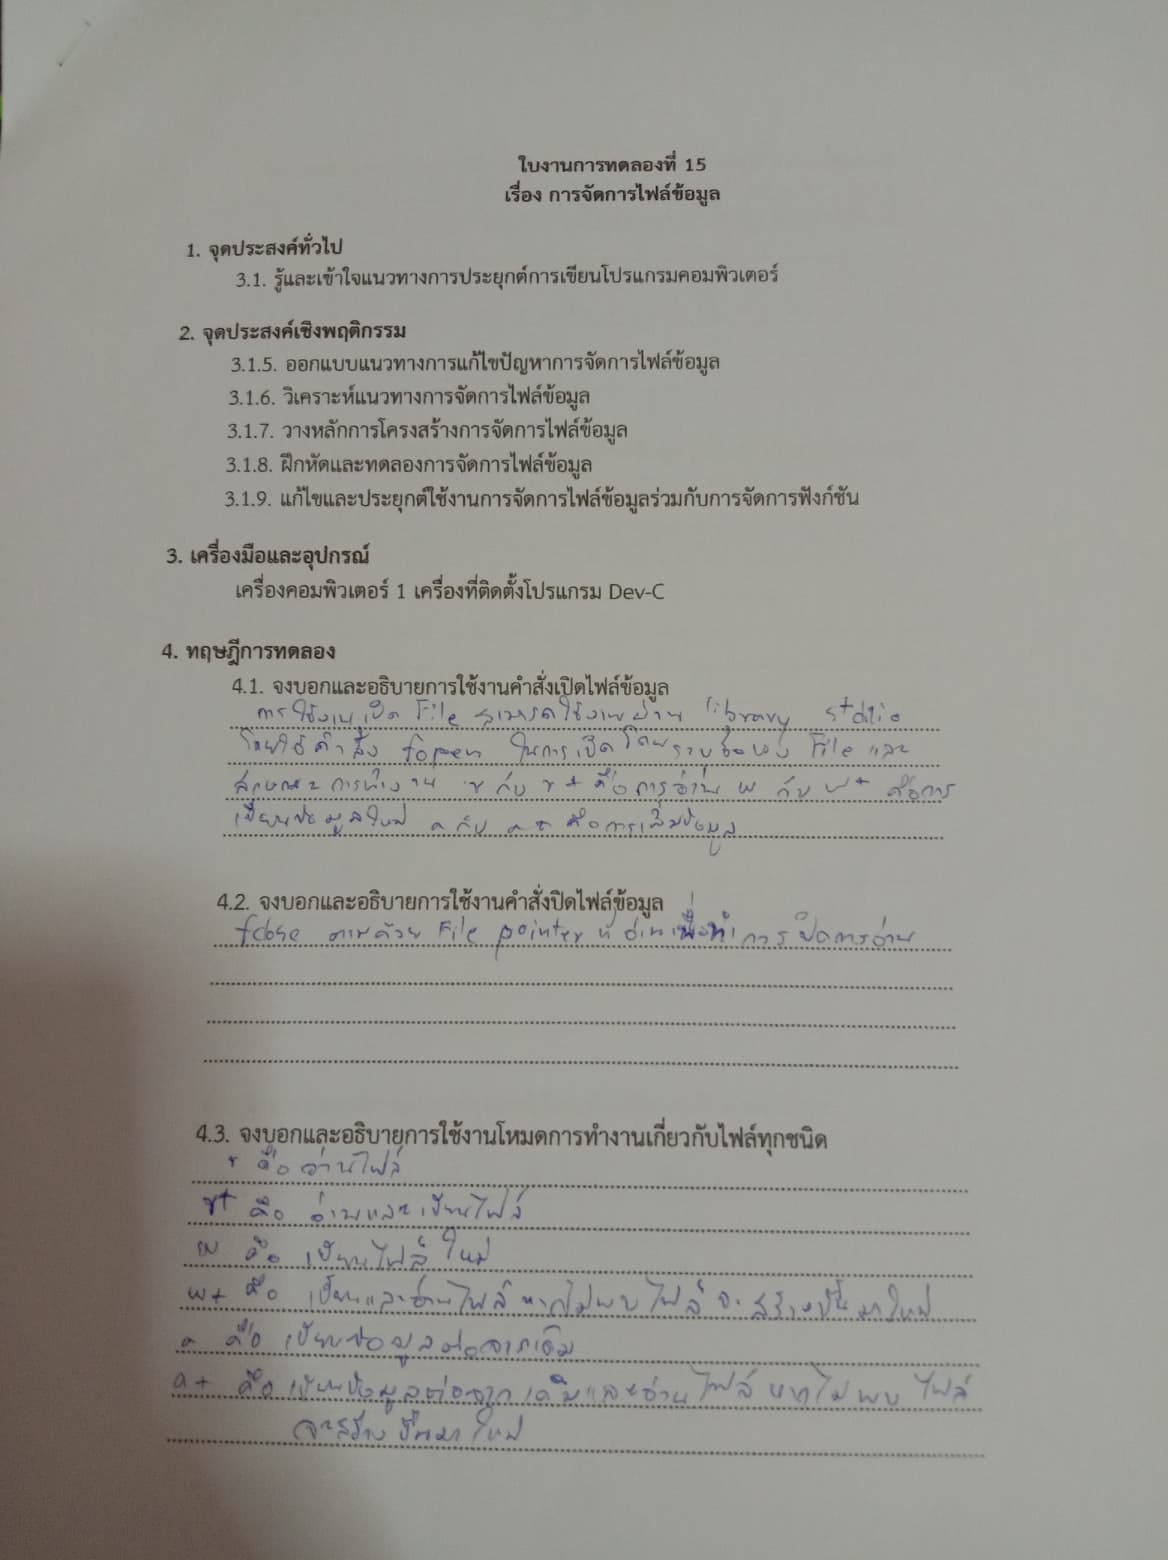 ใบงานการทดลองที่ 15
เรื่อง การจัดการไฟล์ข้อมูล
1. จุดประสงค์ทั่วไป
3.1. รู้และเข้าใจแนวทางการประยุกต์การเขียนโปรแกรมคอมพิวเตอร์
2. จุดประสงค์เชิงพฤติกรรม
3.1.5. ออกแบบแนวทางการแก้ไขปัญหาการจัดการไฟล์ข้อมูล
3.1.6. วิเคราะห์แนวทางการจัดการไฟล์ข้อมูล
3.1.7. วางหลักการโครงสร้างการจัดการไฟล์ข้อมูล
3.1.8. ฝึกหัดและทดลองการจัดการไฟล์ข้อมูล
3.1.9. แก้ไขและประยุกต์ใช้งานการจัดการไฟล์ข้อมูลร่วมกับการจัดการฟังก์ชัน
3. เครื่องมือและอุปกรณ์
เครื่องคอมพิวเตอร์ 1 เครื่องที่ติดตั้งโปรแกรม Dev-C
4. ทฤษฎีการทดลอง
4.1. จงบอกและอธิบายการใช้งานคำสั่งเปิดไฟล์ข้อมูล
การใช้งานเปิด File สามารถใช้งานผ่าน library stdio
โดยใช้คำสั่ง fopen ในการเปิด โดยระบุชื่อของ File และ
ลักษณะการทำงาน r กับ r+ คือการอ่าน w กับ w+ คือการ
เขียนข้อมูลใหม่ a กับ a+ คือการเพิ่มข้อมูล
4.2. จงบอกและอธิบายการใช้งานคำสั่งปิดไฟล์ข้อมูล
fclose ตามด้วย File pointer ที่อ่านเพื่อทำการปิดการอ่าน
4.3. จงบอกและอธิบายการใช้งานโหมดการทำงานเกี่ยวกับไฟล์ทุกชนิด
r คือ อ่านไฟล์
r+ คือ อ่านและเขียนไฟล์
w คือ เขียนไฟล์ใหม่
w+ คือ เขียนและอ่านไฟล์ หากไม่พบไฟล์จะสร้างขึ้นมาใหม่
a คือ เขียนข้อมูลต่อจากเดิม
a+ คือ เขียนข้อมูลต่อจากเดิมและอ่านไฟล์ หากไม่พบไฟล์
จะสร้างขึ้นมาใหม่